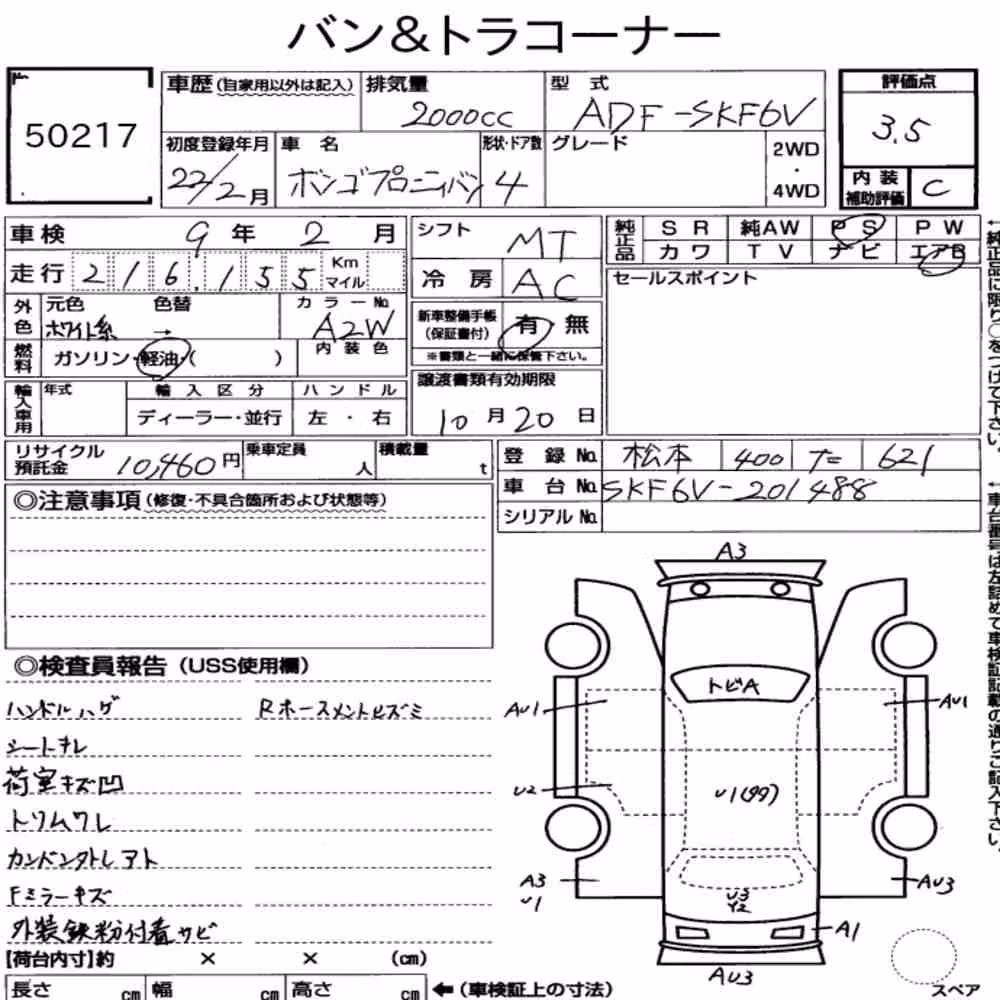 バン&トラコーナー
50217
車歴(自家用以外は記入) 排気量 2000cc 型式 ADF-SKF6V 評価点 3.5
初度登録年月 22/2月 車名 ボンゴブローニィバン 形状・ドア数 4 グレード 2WD・4WD 内装補助評価 C
車検 9年 2月 シフト MT 純正品 SR 純AW PS PW
カワ TV ナビ エアB
走行 216,155 Km マイル 冷房 AC セールスポイント
外色 元色 ホワイト系 色替 → カラーNo. A2W 新車整備手帳(保証書付) 有 無
※書類と一緒に保管下さい。
燃料 ガソリン・軽油・( ) 内装色
輸入車用 年式 輸入区分 ハンドル 譲渡書類有効期限
ディーラー・並行 左・右 10月20日
リサイクル預託金 10,460円 乗車定員 人 積載量 t 登録No. 松本 400 た 621
車台No. SKF6V-201488
シリアルNo.
◎注意事項(修復・不具合箇所および状態等)
◎検査員報告(USS使用欄)
ハンドルハゲ Rホースメントヒズミ
シートキレ
荷室キズ凹
トリムワレ
カンバントレアト
Fミラーキズ
外装鉄粉付着サビ
【荷台内寸】約 × × (cm)
長さ cm 幅 cm 高さ cm ←(車検証上の寸法)
A3
トビA
AU1 AU1
U2 U1(99)
A3 U1 U3 Y2 AU3
A1
AU3
スペア
←純正品に限り○をつけて下さい。
←車台番号は左詰めで車検証記載の通りご記入下さい。